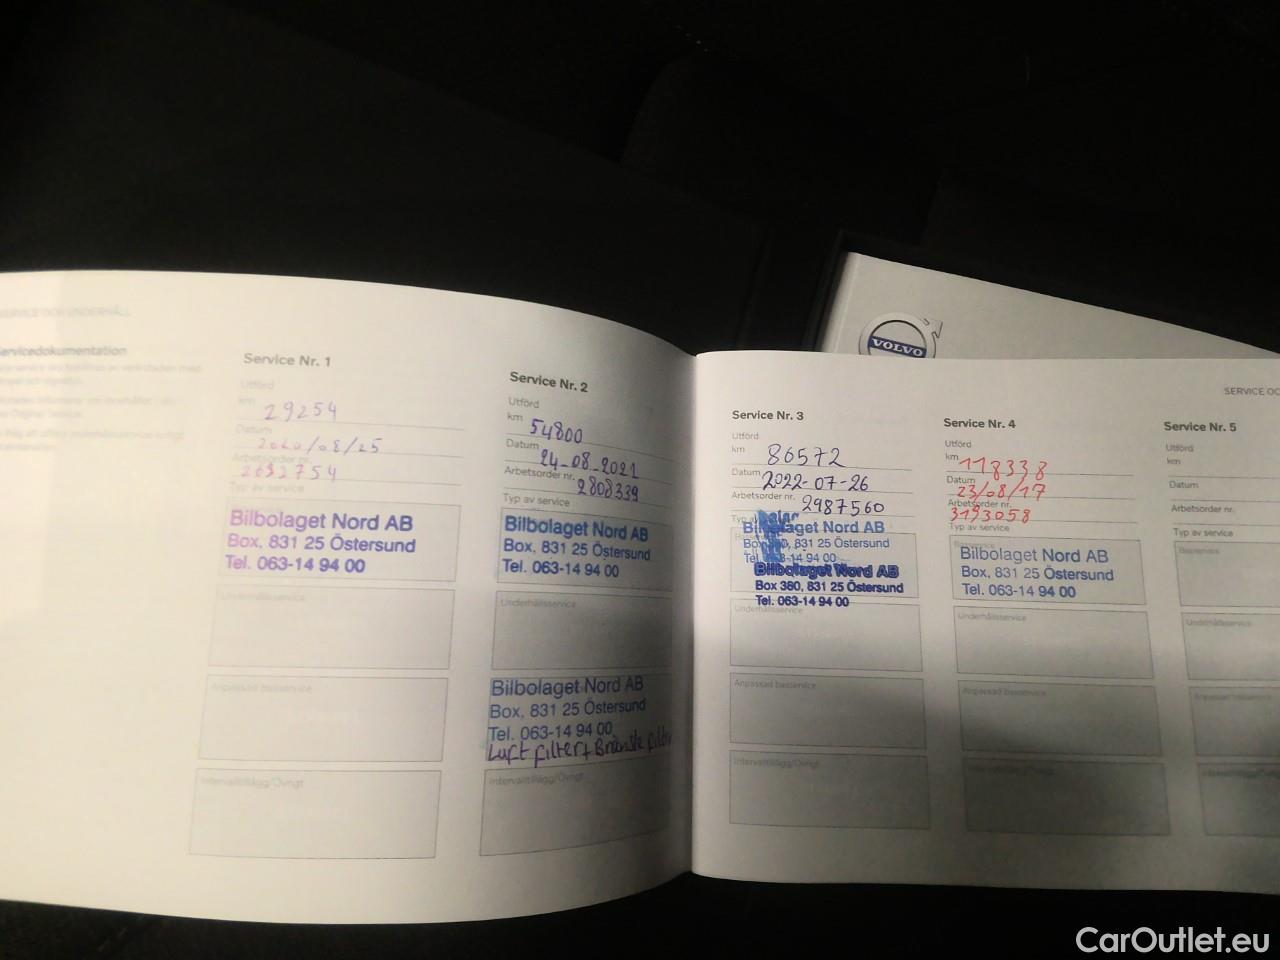 SERVICE OCH UNDERHÅLL
Servicedokumentation
Service Nr. 1
Utförd
km 29254
Datum 2020/08/25
Arbetsorder nr. 2632754
Typ av service
Bilbolaget Nord AB
Box, 831 25 Östersund
Tel. 063-14 94 00
Underhållsservice
Anpassad basservice
Intervalltillägg/Övrigt
Service Nr. 2
Utförd
km 54800
Datum 24-08-2021
Arbetsorder nr. 2808339
Typ av service
Bilbolaget Nord AB
Box, 831 25 Östersund
Tel. 063-14 94 00
Underhållsservice
Bilbolaget Nord AB
Box, 831 25 Östersund
Tel. 063-14 94 00
Luftfilter + Bränsle filter
Intervalltillägg/Övrigt
VOLVO
SERVICE OC
Service Nr. 3
Utförd
km 86572
Datum 2022-07-26
Arbetsorder nr. 2987560
Typ a
Bilbolaget Nord AB
831 25 Östersund
Tel. 063-14 94 00
Bilbolaget Nord AB
Box 360, 831 25 Östersund
Tel. 063-14 94 00
Underhållsservice
Anpassad basservice
Intervalltillägg/Övrigt
Service Nr. 4
Utförd
km 118338
Datum 23/08/17
Arbetsorder nr. 3193058
Typ av service
Basservice
Bilbolaget Nord AB
Box, 831 25 Östersund
Tel. 063-14 94 00
Underhållsservice
Anpassad basservice
Intervalltillägg/Övrigt
Service Nr. 5
Utförd
km
Datum
Arbetsorder nr.
Typ av service
Basservice
Underhållsservice
Anpassad basservice
Intervalltillägg/Övrigt
CarOutlet.eu